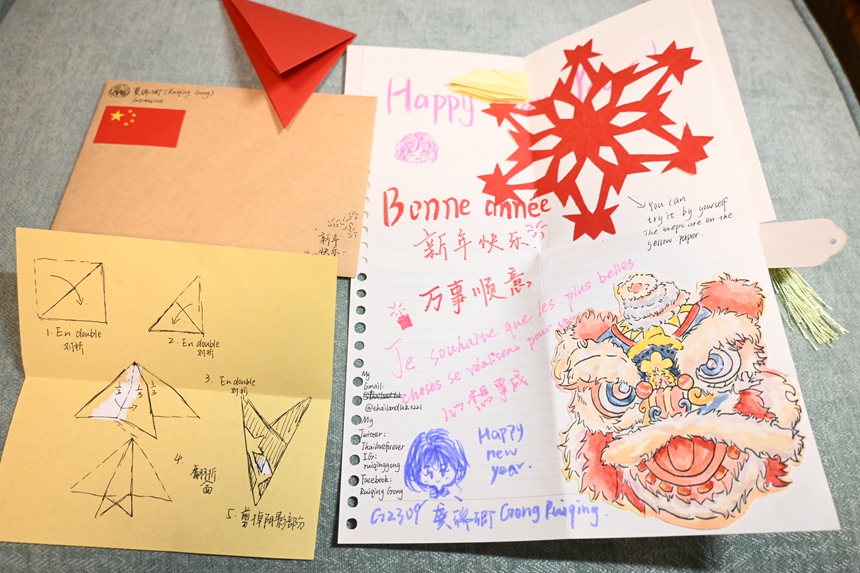 龚瑞卿 (Ruiqing Gong)
Germaine
新年
快乐
1. En double
对折
2. En double
对折
3. En double
对折
1/3
1/3
1/3
4.
翻折
面
5. 剪掉阴影部分
Happy
Bonne année
新年快乐!
万事顺意,
Je souhaite que les plus belles
choses se réalisent pour
心想事成
You can
try it by yourself.
The steps are on the
yellow paper.
My
Gmail:
@thailandlak
My
Twitter:
Thailoveforever
IG:
ruiqinggong
Facebook:
Ruiqing Gong
Happy
new
year.
G2309 龚瑞卿 Gong Ruiqing.